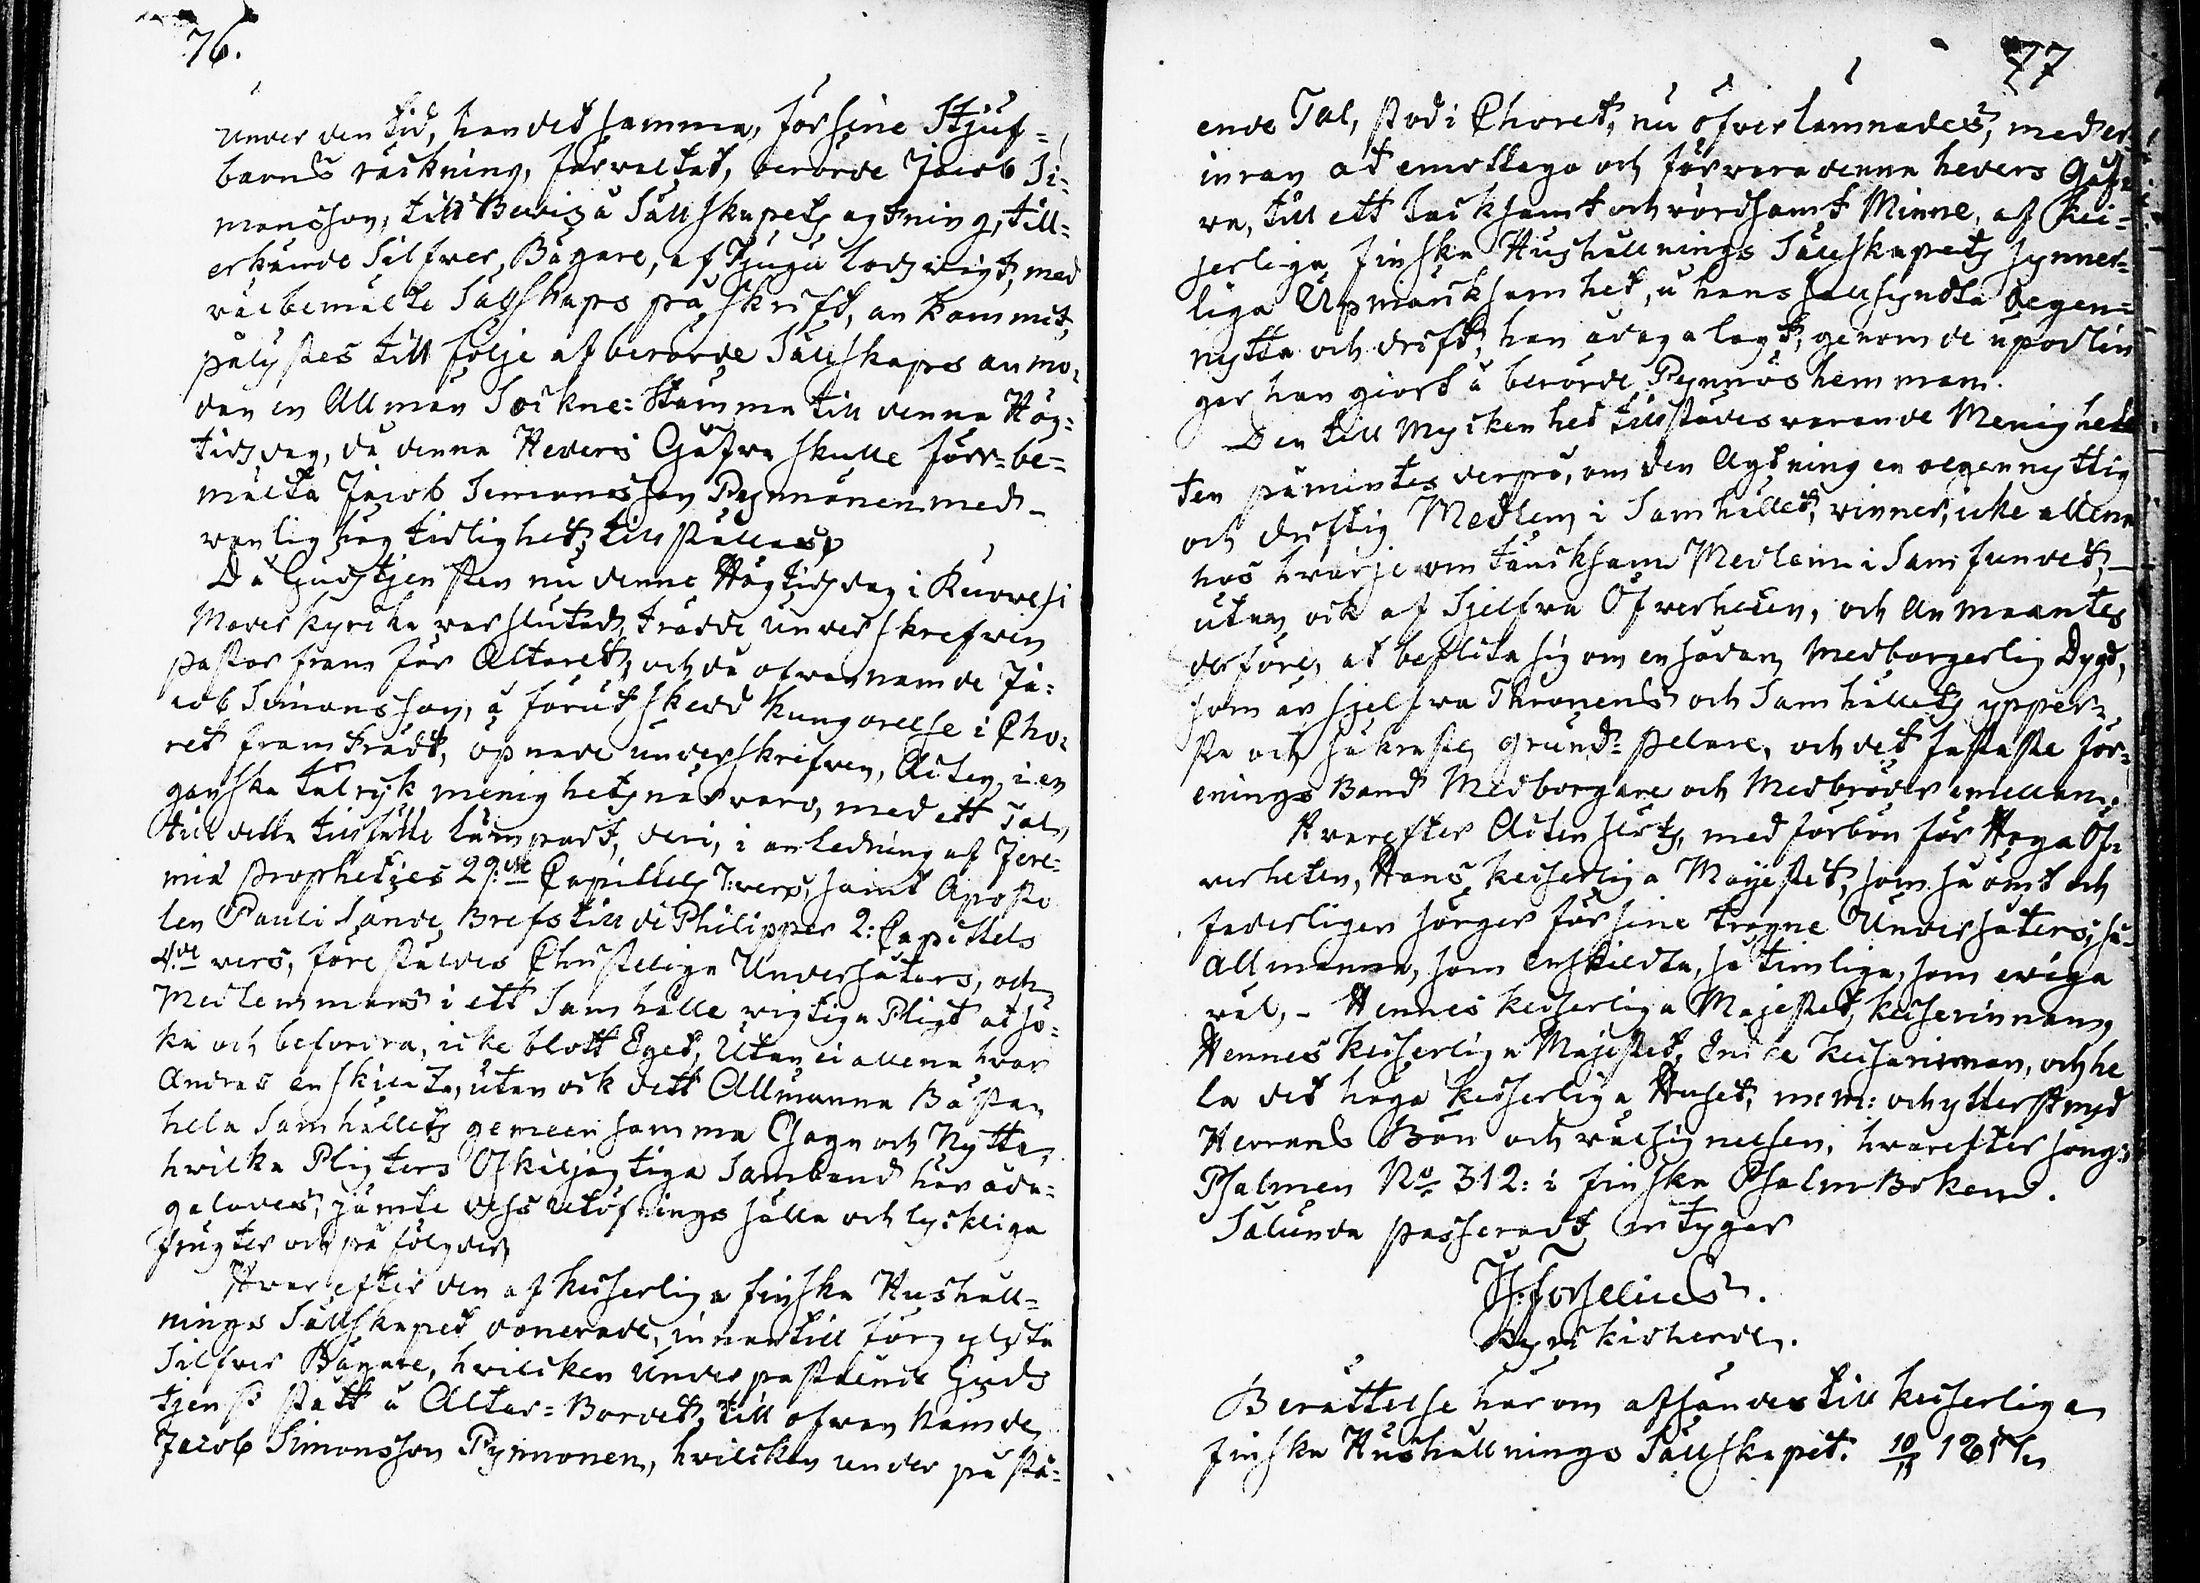 76.
under den tid, han det samma, för sine Stjuf-
barns räckning, förvaltat, berörde Jacob Si-
monsson, till Bevis å Sällskapets agtning, till-
erkände Silfver, Bägare, af Tjugu lods wigt, med
välbemälte Sällskaps på skrift, an kommit,
pålystes till följe af berörde Sällskaps anmo-
dan en Allmän Sockne-Stämma till denna Hög-
tidsdag, då denna Heders Gåfva skulle förr-be-
mälta Jacob Simonsson Pynnönen med
vanlig högtidlighet, tillställas.
Då Gudstjensten nu denne Högtidsdag i Ruovesi
Moder kyrcka var slutad, trädde under skrefven
pastor fram för Altaret, och då ofvannämde Ja-
cob Simonsson, å förut skedd kungörelse i Cho-
ret framträdt, öpnade underskrifven, Acten, i en
ganska talrijk menighets närvaro, med ett Tal,
till detta tillfälle lämpadt, deri, i anledning af Jere-
mia Propheties 29:de Capittels 7: vers, samt Aposte
len Pauli Sände Brefs till de Philipper 2: Capittels
4:de vers, förestäldes Christeliga Undersåters, och
Medlemmars i ett Samhälle wigtiga Pligt at sö-
ka och befordra, icke blott Eget, Utan ei allena hvar
Andras enskilta, utan ock dett Allmänna Bästa,
hela Samhällets gemeensamma Gagn och Nytta,
hvilka Pligters Oskiljagtiga Samband här åda-
galades, jämte dess utöfnings sälla och lyckliga
frugter och på fölgder.
Hvar efter den af Keiserliga finska Hushåll-
nings Sällskapet donerade, innantill förgylta
Silfver Bägare, hvilcken under påstående Guds
tjenst stått å Altar-Bordet, till ofvan nämde
Jacob Simonsson Pynnönen, hvilcken under på stå-
77
ende Tal, stod i Choret, nu öfverlämnades, med er-
inran at emottaga och förvara denna heders Gåf-
va, till ett tacksamt och vördsamt Minne, af Kei-
serliga finska Hushållnings Sällskapets synner-
liga Upmärcksamhet, å hans sällsyndta oegen-
nytta och drift, han ådagalagt, genom de upodlin
gar han giort å berörde Pynnös hemman.
Den till Myckenhet tillstädes varande Menighe
ten påmintes derpå, om den Agtning en oegennyttig
och driftig Medlem i Samhället, vinner, icke allena
hos hvarje om tänksam Medlem i Samfundet,
utan ock af Sjelfva Öfverheten, och Anmantes
derföre, at beflita sig om en sådan Medborgerlig Dygd,
som är sjelfva Thronens och Samhällets ypper-
sta och säkraste grund-pelare, och det fastaste för-
enings Band Medborgare och Medbröder emellan.
Hvarefter Acten slöts, med förbön för Höga Öf-
verheten, Hans Keiserliga Majestet, som så ömt och
faderligen sörger för sine trogne Undersåters, så
allmänna, som enskildta, så timliga, som eviga
väl, - Hennes Keiserliga Majestet, Keiserinnan,
Hennes Keiserliga Majestet, Encke Keiserinnan, och he
la det höga Keiserliga Huset, m:m: och ytterst med
Herrans Bön och välsignelsen, hvarefter söngs
Psalmen No 312: i finska Psalm Boken.
Sålunda passeradt intygar
H: Forsellius.
Kyrckioherde.
Berättelse härom afsändes till Keiserliga
finska Hushållnings Sällskapet.